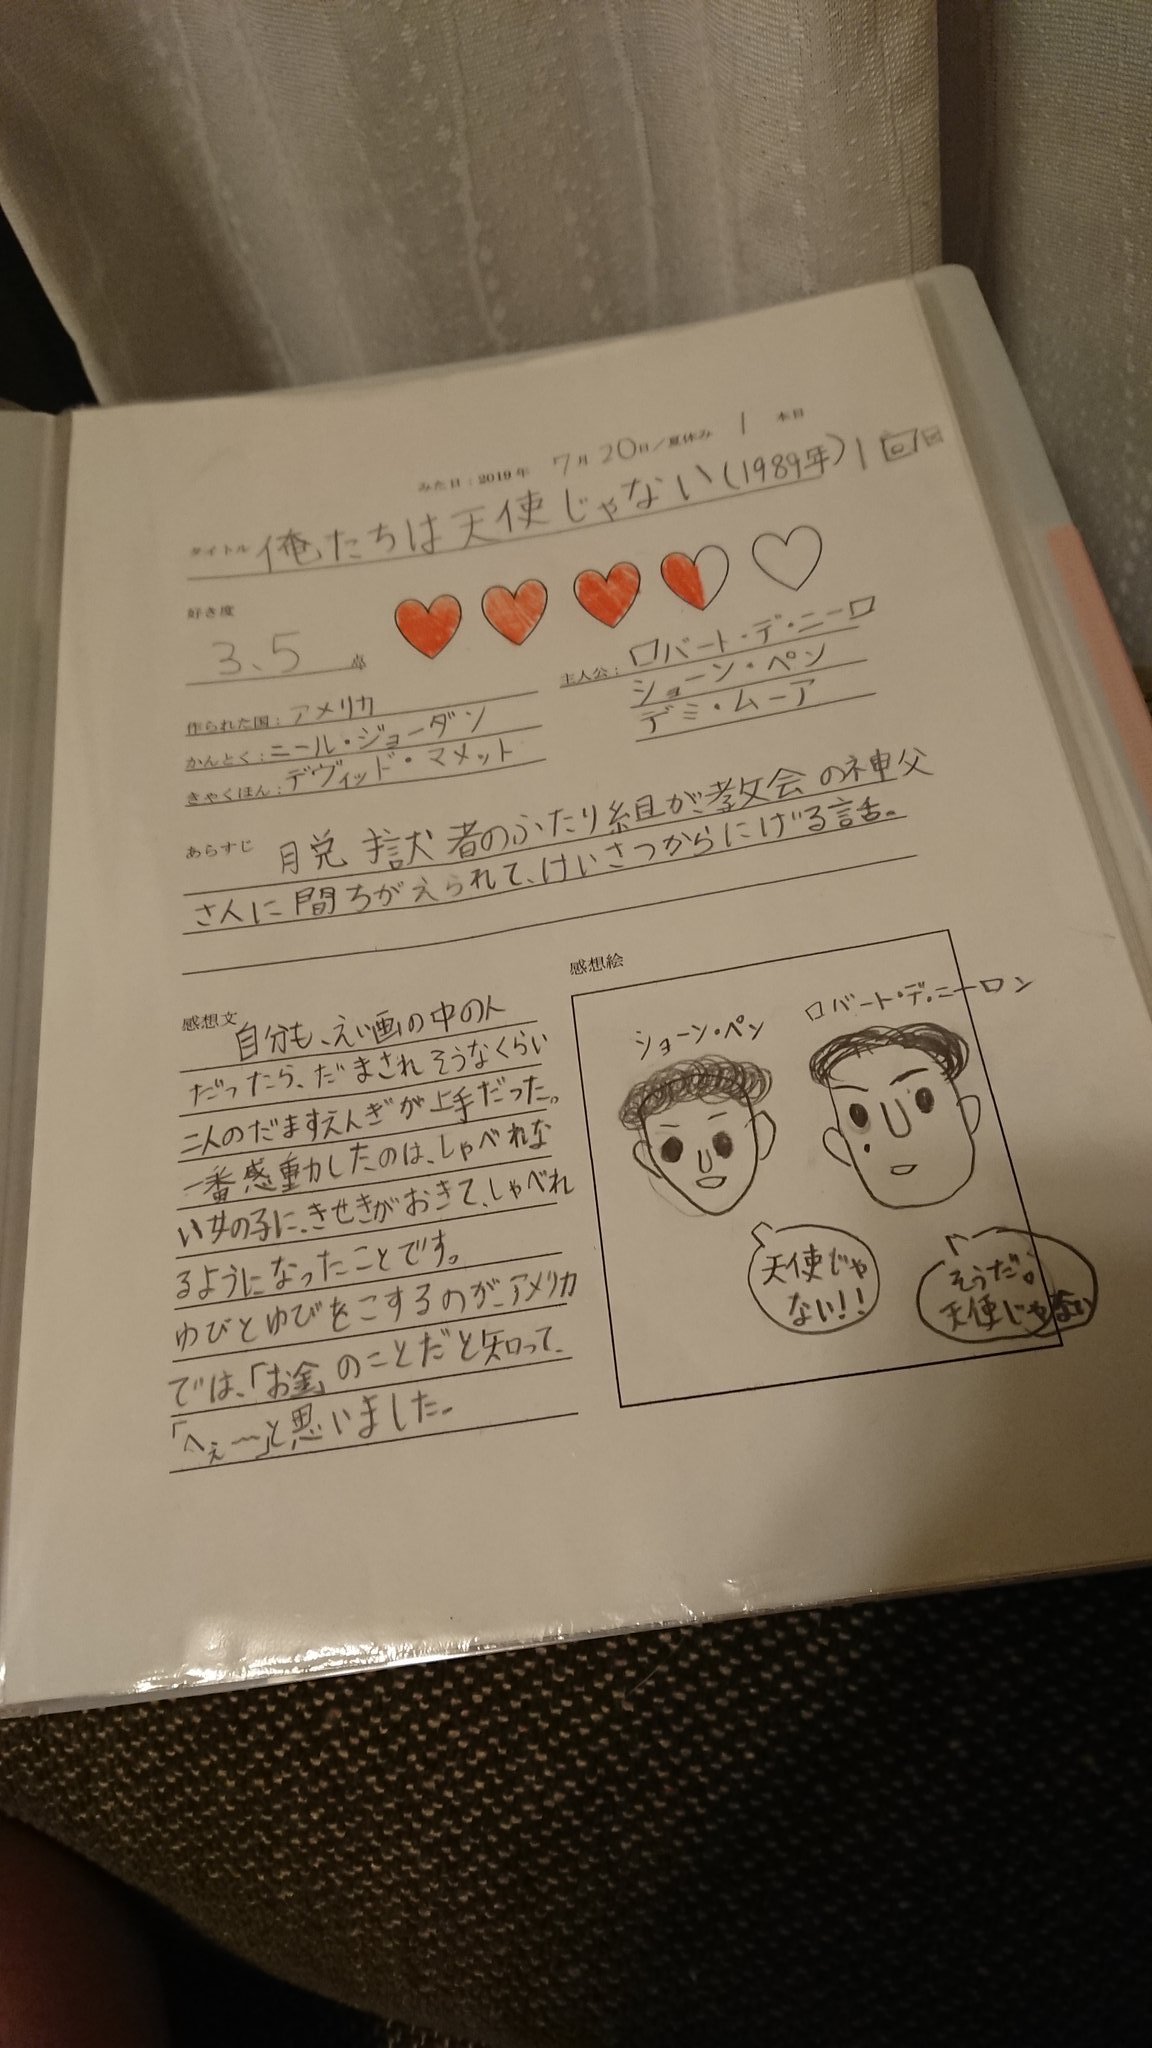 みた日：2019年 7月20日／夏休み 1 本目
タイトル 俺たちは天使じゃない(1989年) 1回目
好き度
3、5 点
主人公：ロバート・デ・ニーロ
ショーン・ペン
デミ・ムーア
作られた国：アメリカ
かんとく：ニール・ジョーダン
きゃくほん：デヴィッド・マメット
あらすじ 脱獄者のふたり組が、教会の神父
さんに間ちがえられて、けいさつからにげる話。
感想文 自分も、えい画の中の人
だったら、だまされそうなくらい
二人のだますえんぎが上手だった。
一番感動したのは、しゃべれな
い女の子に、きせきがおきて、しゃべれ
るようになったことです。
ゆびとゆびをこするのが、アメリカ
では、「お金」のことだと知って、
「へぇ〜」と思いました。
感想絵
ショーン・ペン
ロバート・デ・ニーロン
天使じゃ
ない!!
そうだ。
天使じゃない